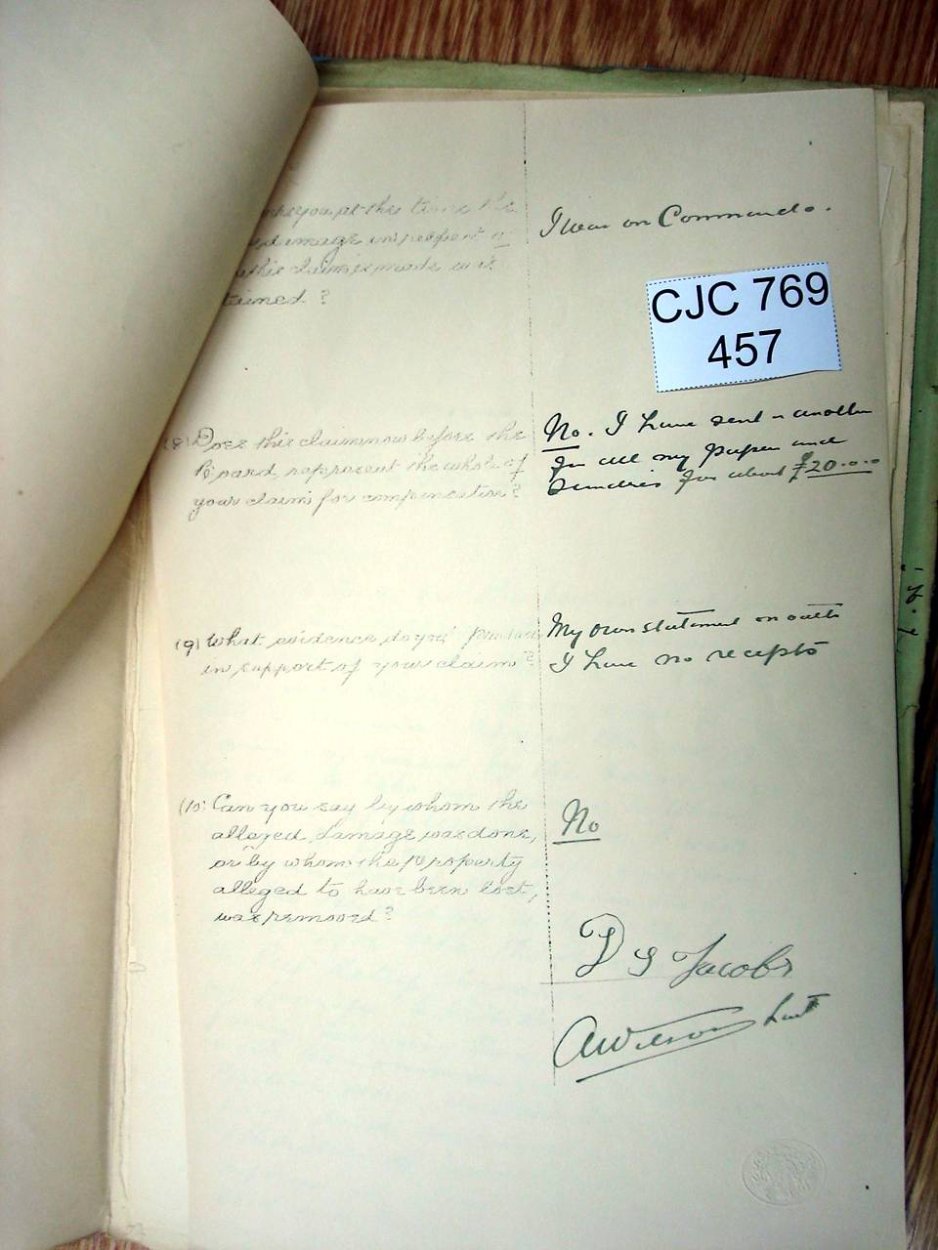 you at the time the
damage in respect o
this claim is made was
tained ?
I was on Commando.
CJC 769
457
(8) Does this claim now before the
Board represent the whole of
your claim for compensation ?
No. I have sent in another
for all my papers and
Sundries for about £20.0.0
(9) What evidence do you produce
in support of your claim ?
My own statement on oath
I have no recepts
(10) Can you say by whom the
alleged damage was done,
or by whom the property
alleged to have been lost,
was removed ?
No
D S Jacobs
AWilson Lieut